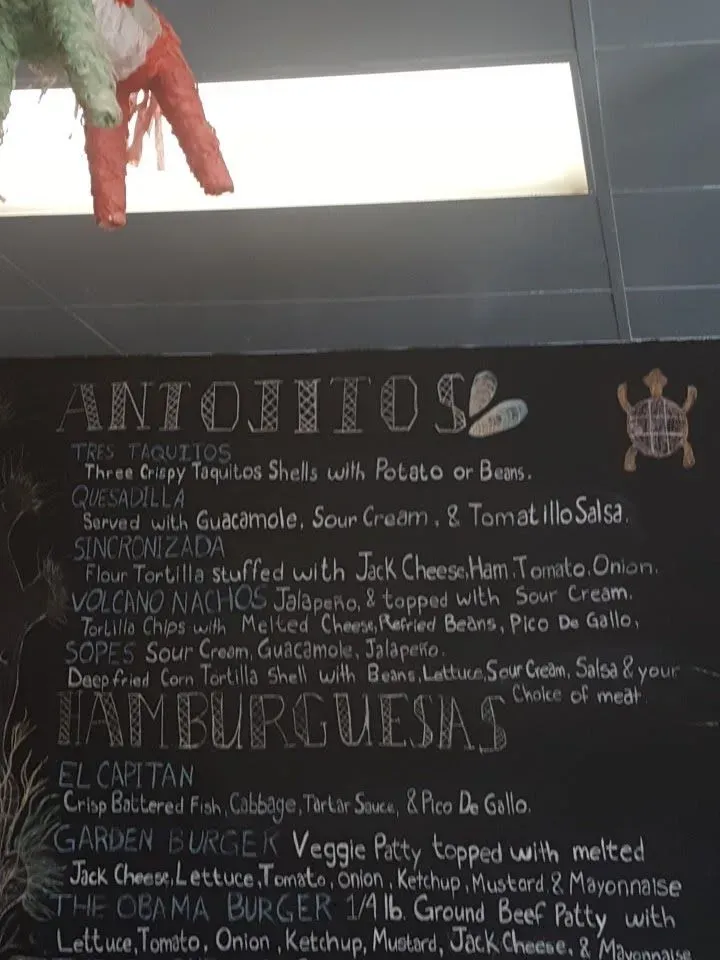 ANTOJITOS
TRES TAQUITOS
Three Crispy Taquitos Shells with Potato or Beans.
QUESADILLA
Served with Guacamole, Sour Cream, & Tomatillo Salsa.
SINCRONIZADA
Flour Tortilla stuffed with Jack Cheese, Ham, Tomato, Onion.
VOLCANO NACHOS Jalapeño, & topped with Sour Cream.
Tortilla Chips with Melted Cheese, Refried Beans, Pico De Gallo,
SOPES Sour Cream, Guacamole, Jalapeño.
Deep fried Corn Tortilla Shell with Beans, Lettuce, Sour Cream, Salsa & your
Choice of meat.
HAMBURGUESAS
EL CAPITAN
Crisp Battered Fish, Cabbage, Tartar Sauce, & Pico De Gallo.
GARDEN BURGER Veggie Patty topped with melted
Jack Cheese, Lettuce, Tomato, Onion, Ketchup, Mustard & Mayonnaise
THE OBAMA BURGER 1/4 lb. Ground Beef Patty with
Lettuce, Tomato, Onion, Ketchup, Mustard, Jack Cheese, & Mayonnaise